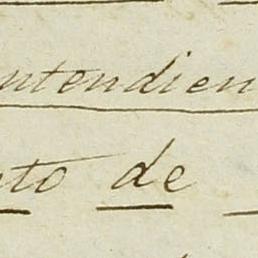 ntendien
nto de